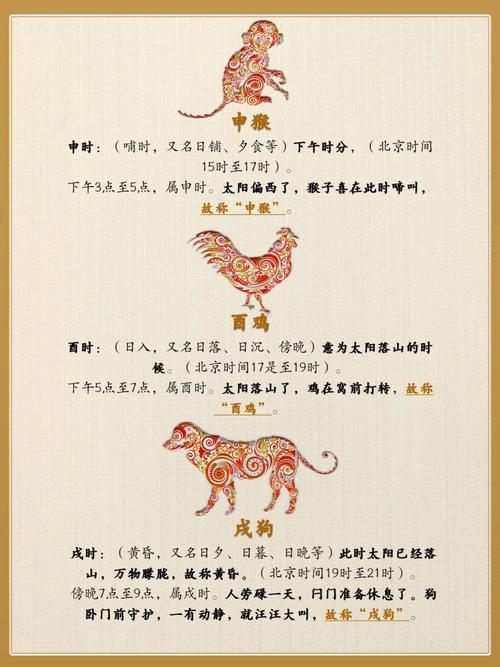 申猴
申时：（哺时，又名日铺、夕食等）下午时分，（北京时间
15时至17时）。
下午3点至5点，属申时。太阳偏西了，猴子喜在此时啼叫，
故称“申猴”。
酉鸡
酉时：（日入，又名日落、日沉、傍晚）意为太阳落山的时
候。（北京时间17是至19时）。
下午5点至7点，属酉时。太阳落山了，鸡在窝前打转，故称
“酉鸡”。
戌狗
戌时：（黄昏，又名日夕、日暮、日晚等）此时太阳已经落
山，万物朦胧，故称黄昏。（北京时间19时至21时）。
傍晚7点至9点，属戌时。人劳碌一天，闩门准备休息了。狗
卧门前守护，一有动静，就汪汪大叫，故称“戌狗”。